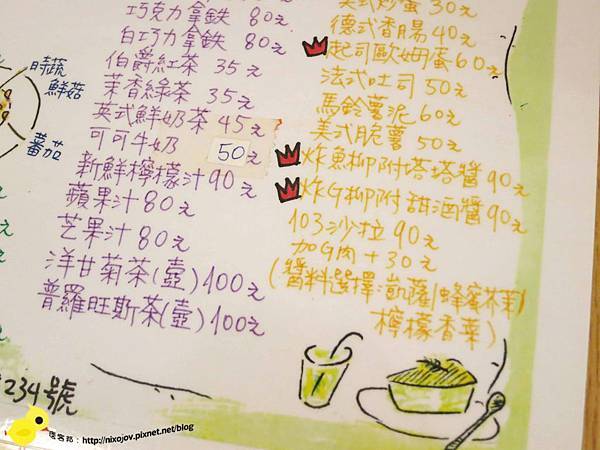 巧克力拿鐵 80元
白巧力拿鐵 80元
伯爵紅茶 35元
茉香綠茶 35元
英式鮮奶茶 45元
可可牛奶 50元
新鮮檸檬汁 90元
蘋果汁 80元
芒果汁 80元
洋甘菊茶(壺) 100元
普羅旺斯茶(壺) 100元
美式炒蛋 30元
德式香腸 40元
起司歐姆蛋 60元
法式吐司 50元
馬鈴薯泥 60元
美式脆薯 50元
炸魚柳附塔塔醬 90元
炸G柳附甜酒醬 90元
103沙拉 90元
加G肉 +30元
(醬料選擇:凱薩/蜂蜜芥茉/
檸檬香菜)
時蔬
鮮菇
蕃茄
234號
痞客邦:http://nixojov.pixnet.net/blog